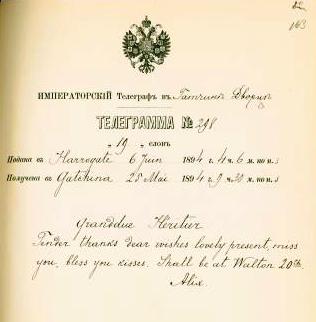 163
ИМПЕРАТОРСКІЙ Телеграфъ въ Гатчинѣ Дворецъ
ТЕЛЕГРАММА № 298
„ 19 „ словъ
Подана въ Harrogate 6 Juin 1894 г. 4 ч. 6 м. по п.
Получена въ Gatchina 25 Mai 1894 г. 9 ч. 30 м. по п.
Grandduc Héritier
Tender thanks dear wishes lovely present, miss
you, bless you kisses. Shall be at Walton 20th.
Alix.